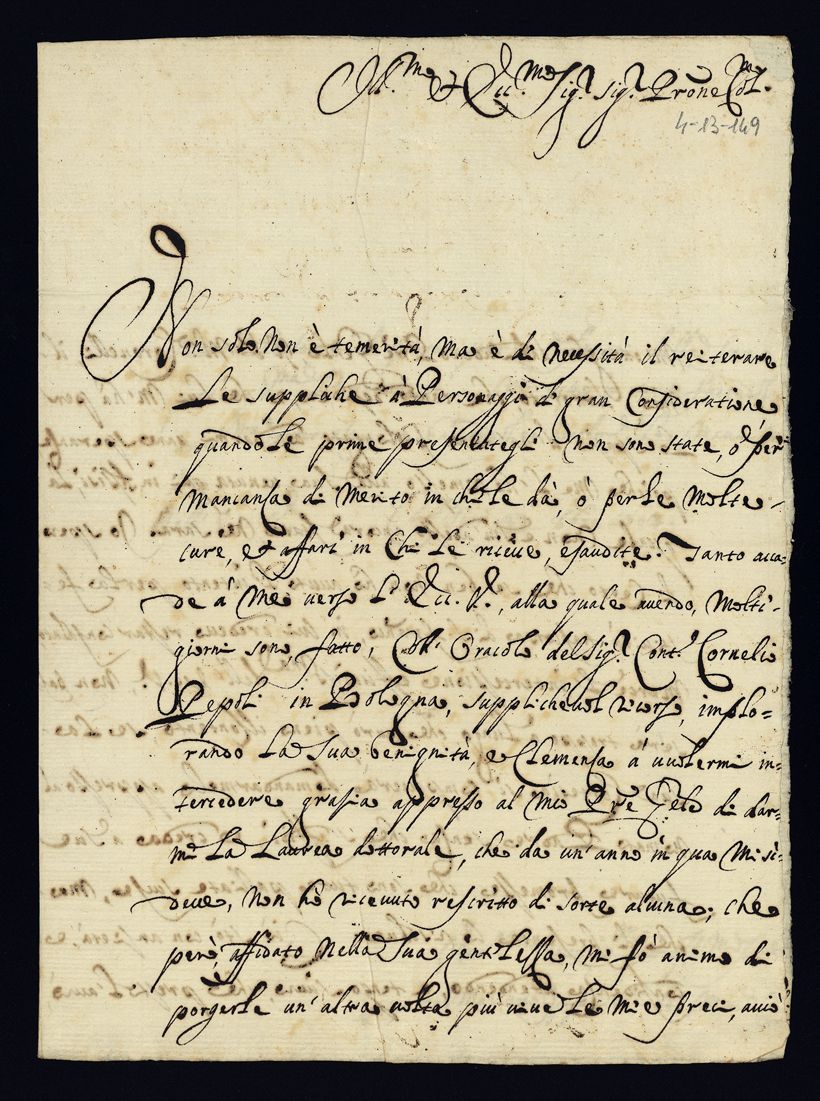 Ill.mo et Ecc.mo Sig.r Sig.r Prone Col.mo
4-13-149
Non solo non è temerità, ma è di necessità il reiterare
le suppliche à Personaggi di gran Consideratione
quando le prime presentategli non sono state, ò per
mancanza di merito in chi le dà, ò per le molte
cure, et affari in chi le riceve, esaudite. Tanto acca-
de à me verso l'Ecc. V., alla quale avendo, molti
giorni sono, fatto, coll' Oracolo del Sig.r Cont.e Cornelio
Pepoli in Bologna, supplichevol ricorso, implo=
rando la sua benignità, e Clemenza à volermi in=
tercedere grazia appresso al mio Pre Gele di dar=
mi la Laurea dottorale, che da un' anno in qua mi si
deve, non hò ricevuto rescritto di sorte alcuna; che
però, affidato nella sua gentilezza, mi fò animo di
porgerle un' altra volta più vive le mie preci, acciò